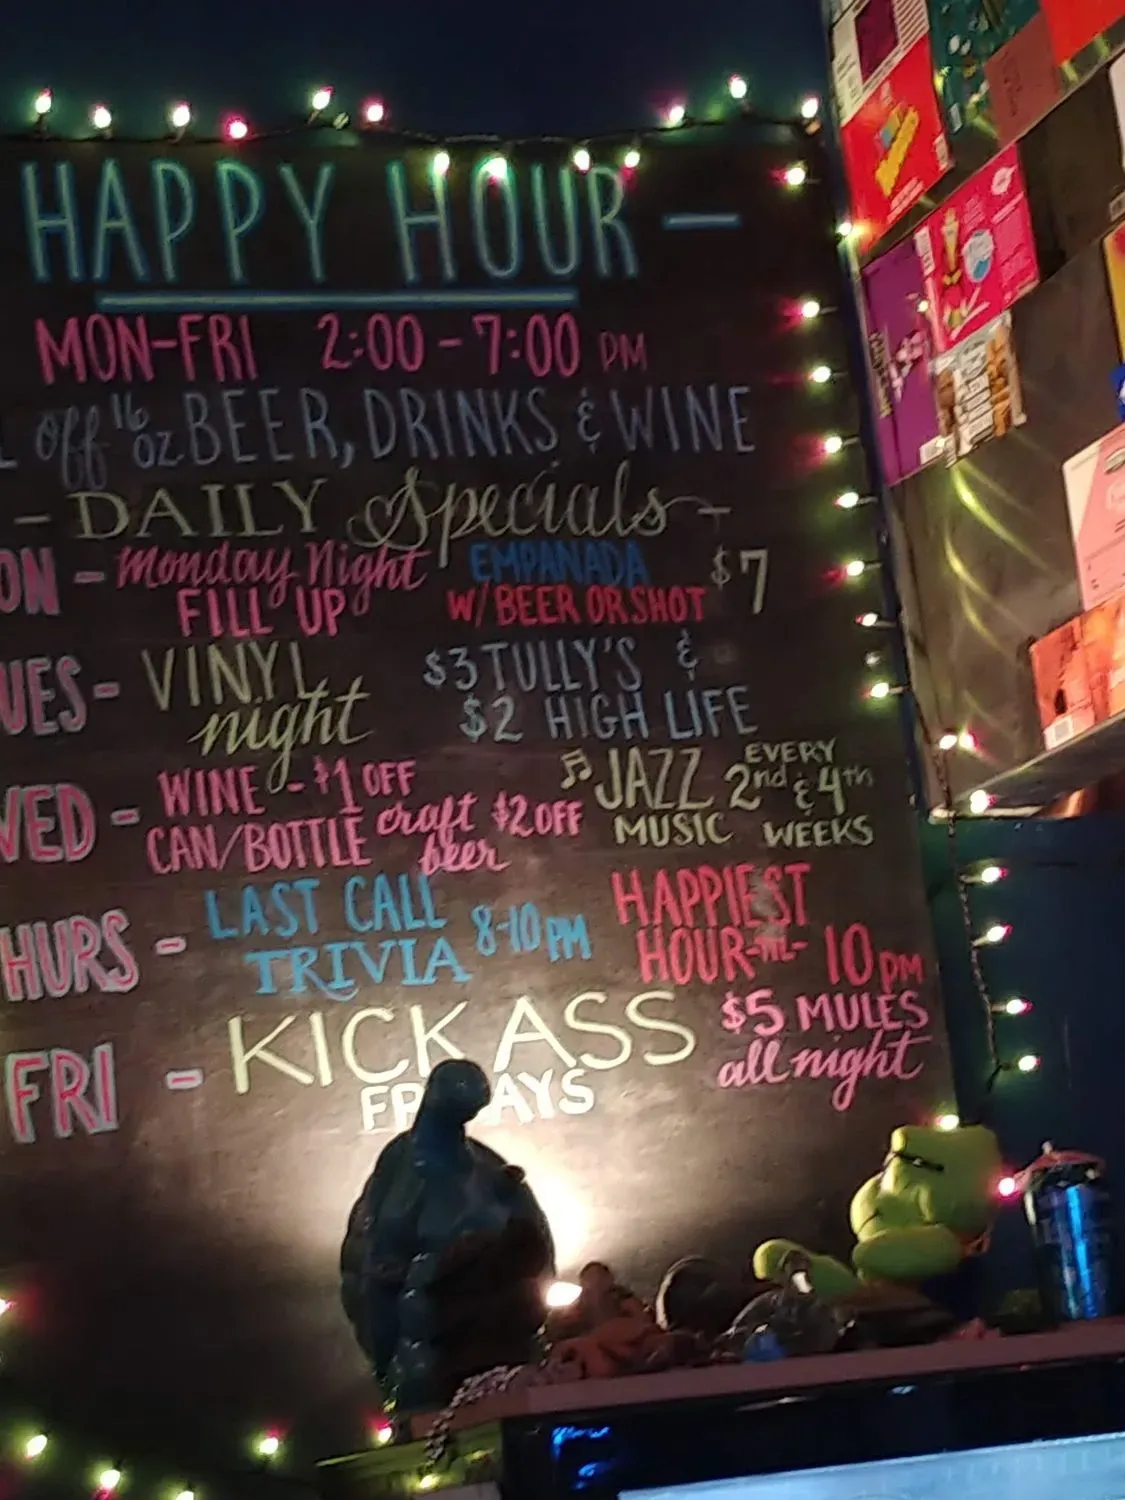 HAPPY HOUR —
MON-FRI 2:00 - 7:00 PM
off 16 oz BEER, DRINKS & WINE
- DAILY Specials -
ON - Monday Night FILL UP EMPANADA W/ BEER OR SHOT $7
UES - VINYL night $3 TULLY'S & $2 HIGH LIFE
WED - WINE - $1 OFF CAN/BOTTLE craft beer $2 OFF ♫ JAZZ MUSIC EVERY 2nd & 4th WEEKS
HURS - LAST CALL TRIVIA 8-10 PM HAPPIEST HOUR -TIL- 10 PM
FRI - KICK ASS FRIDAYS $5 MULES all night